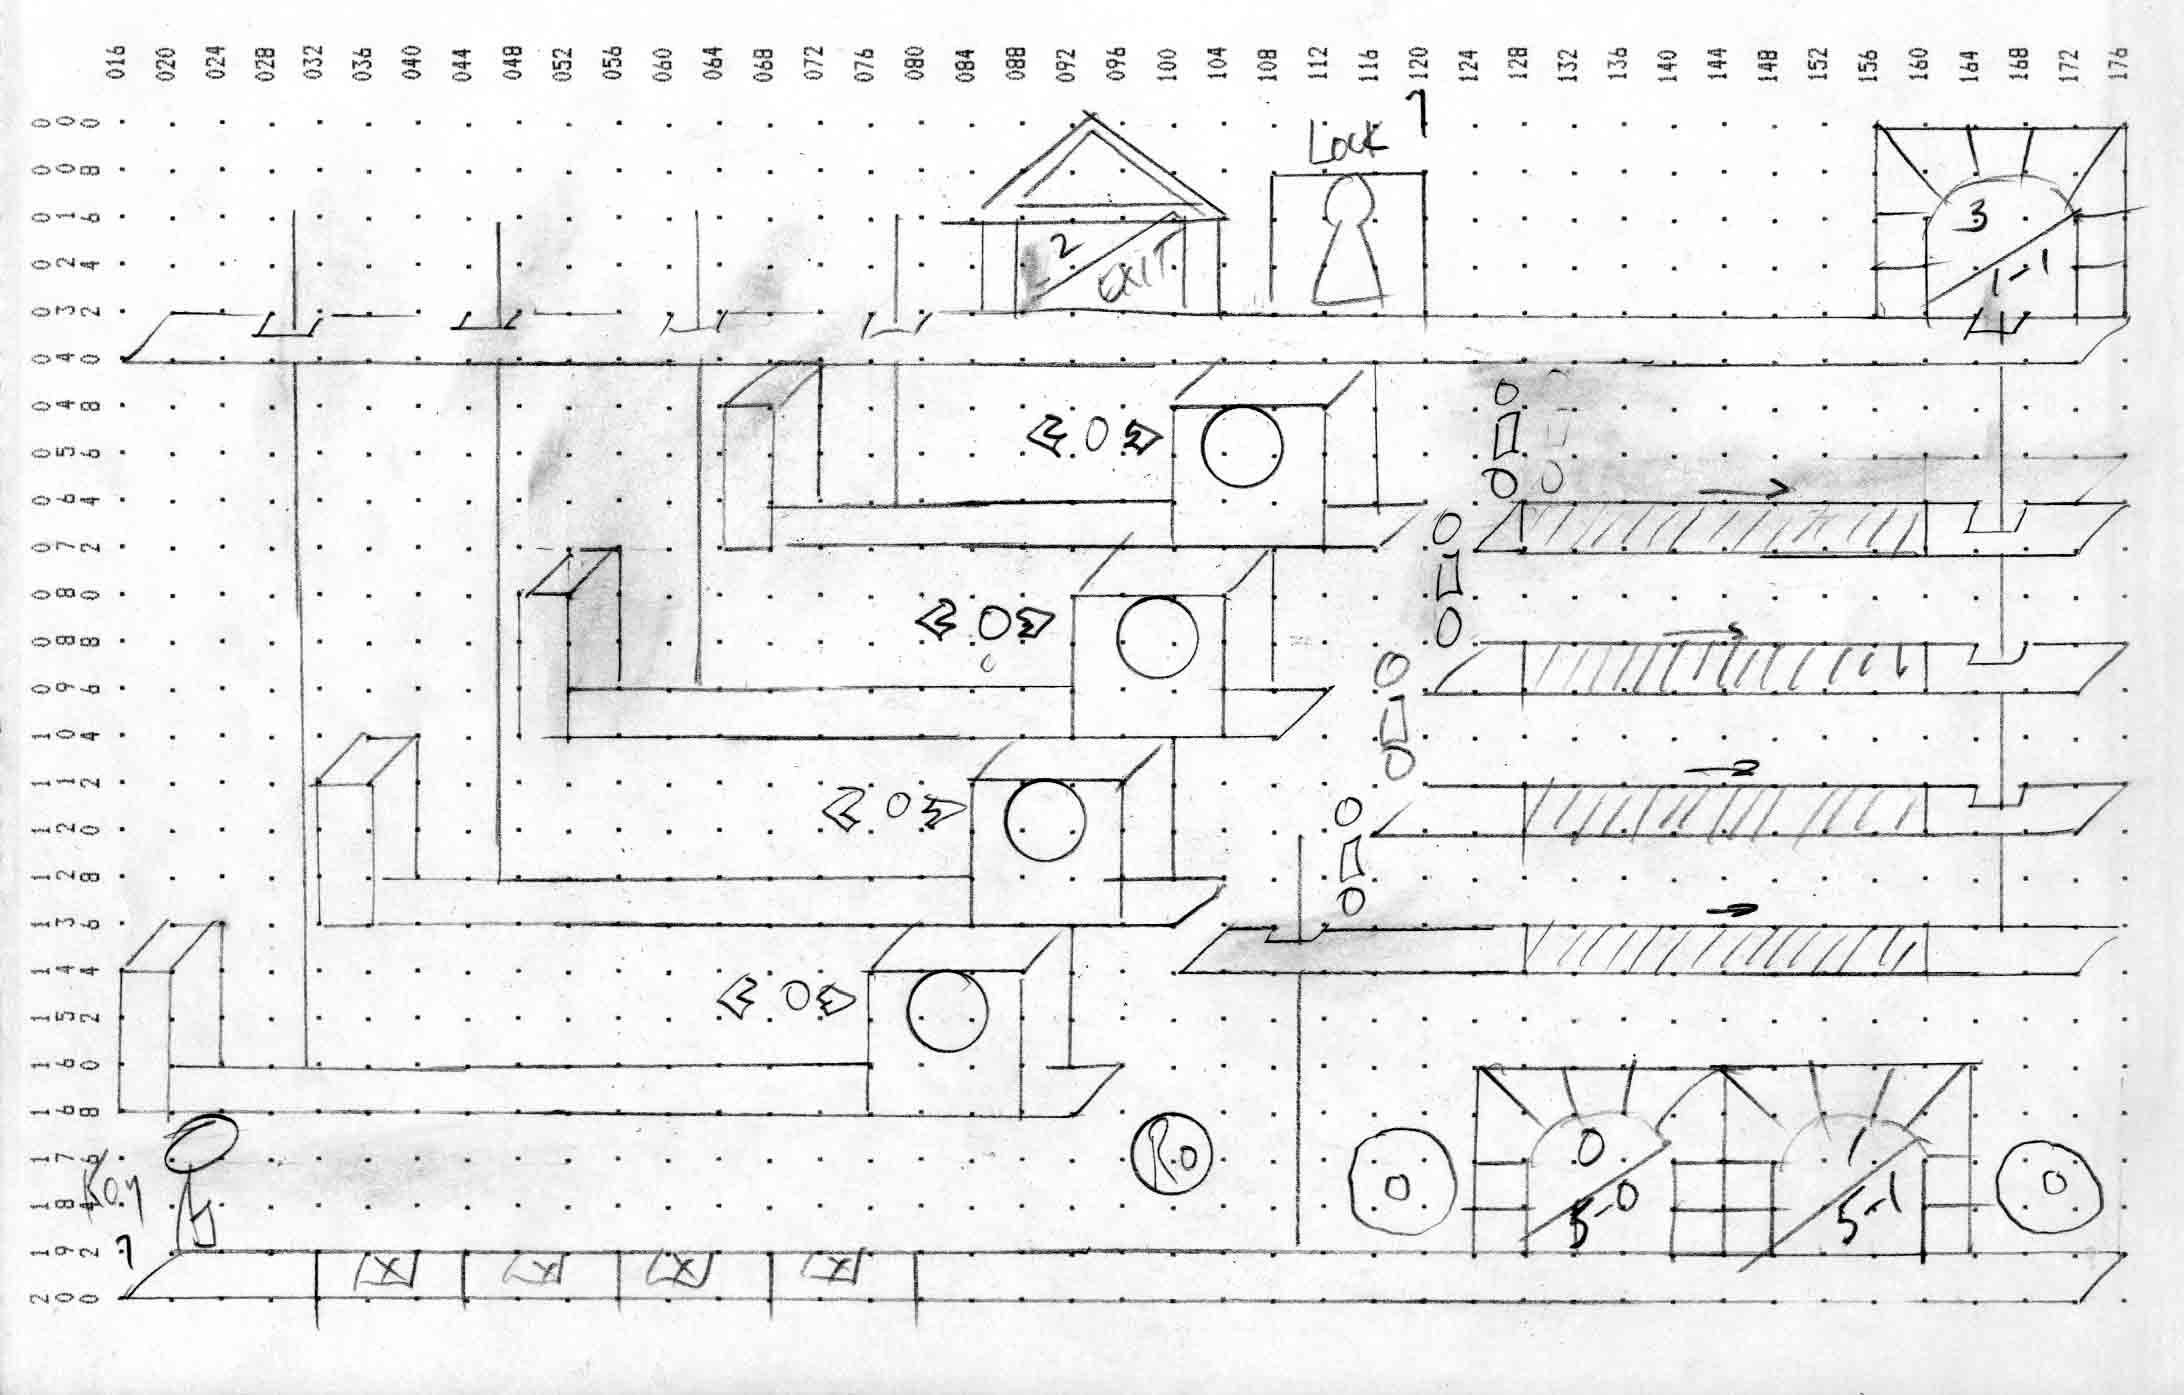 016 020 024 028 032 036 040 044 048 052 056 060 064 068 072 076 080 084 088 092 096 100 104 108 112 116 120 124 128 132 136 140 144 148 152 156 160 164 168 172 176
000
008
016
024
032
040
048
056
064
072
080
088
096
104
112
120
128
136
144
152
160
168
176
184
192
200
Lock 7
2
EXIT
3
1-1
0
0
0
0
R0
0
0
5-0
1
5-1
0
Key
7
X X X X